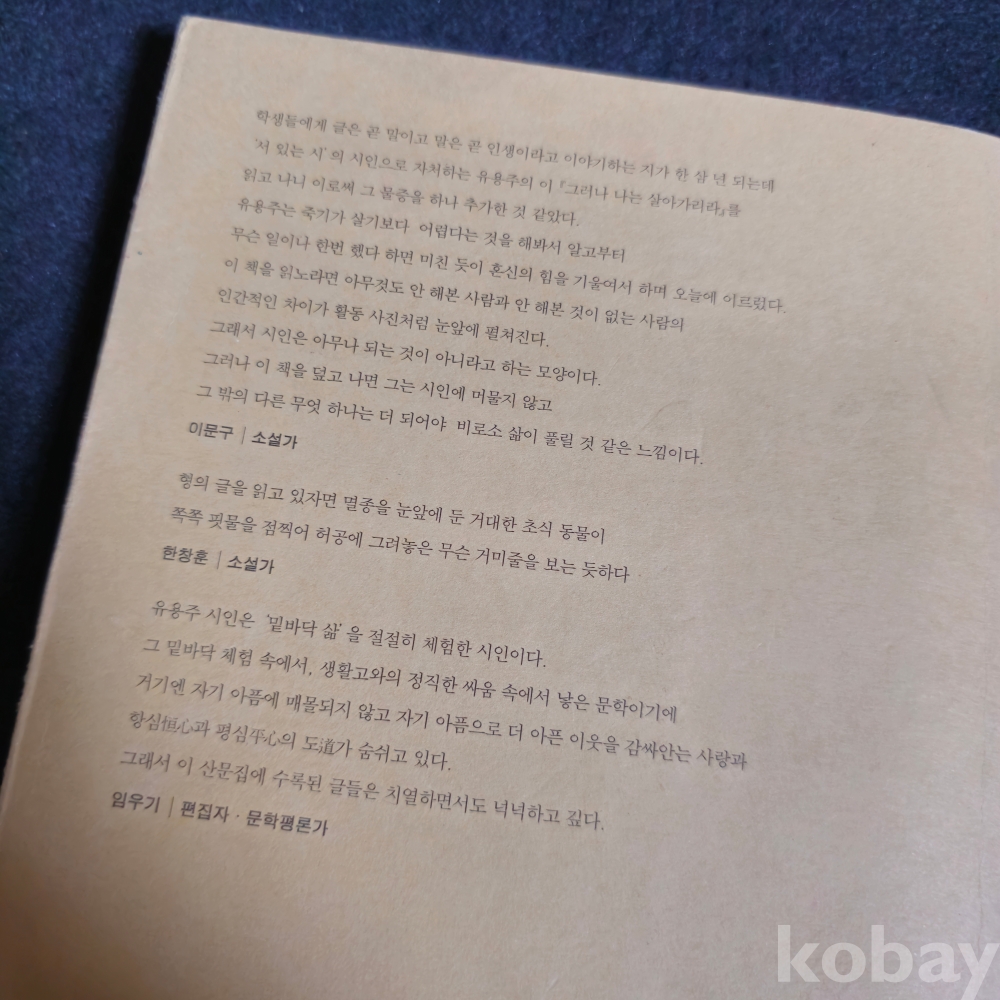 학생들에게 글은 곧 말이고 말은 곧 인생이라고 이야기하는 지가 한 삼 년 되는데
'서 있는 시'의 시인으로 자처하는 유용주의 이 『그러나 나는 살아가리라』를
읽고 나니 이로써 그 물증을 하나 추가한 것 같았다.
유용주는 죽기가 살기보다 어렵다는 것을 해봐서 알고부터
무슨 일이나 한번 했다 하면 미친 듯이 혼신의 힘을 기울여서 하며 오늘에 이르렀다.
이 책을 읽노라면 아무것도 안 해본 사람과 안 해본 것이 없는 사람의
인간적인 차이가 활동 사진처럼 눈앞에 펼쳐진다.
그래서 시인은 아무나 되는 것이 아니라고 하는 모양이다.
그러나 이 책을 덮고 나면 그는 시인에 머물지 않고
그 밖의 다른 무엇 하나는 더 되어야 비로소 삶이 풀릴 것 같은 느낌이다.
이문구 | 소설가
형의 글을 읽고 있자면 멸종을 눈앞에 둔 거대한 초식 동물이
쪽쪽 핏물을 점찍어 허공에 그려놓은 무슨 거미줄을 보는 듯하다
한창훈 | 소설가
유용주 시인은 '밑바닥 삶'을 절절히 체험한 시인이다.
그 밑바닥 체험 속에서, 생활고와의 정직한 싸움 속에서 낳은 문학이기에
거기엔 자기 아픔에 매몰되지 않고 자기 아픔으로 더 아픈 이웃을 감싸안는 사랑과
항심恒心과 평심平心의 도道가 숨쉬고 있다.
그래서 이 산문집에 수록된 글들은 치열하면서도 넉넉하고 깊다.
임우기 | 편집자 · 문학평론가
kobay